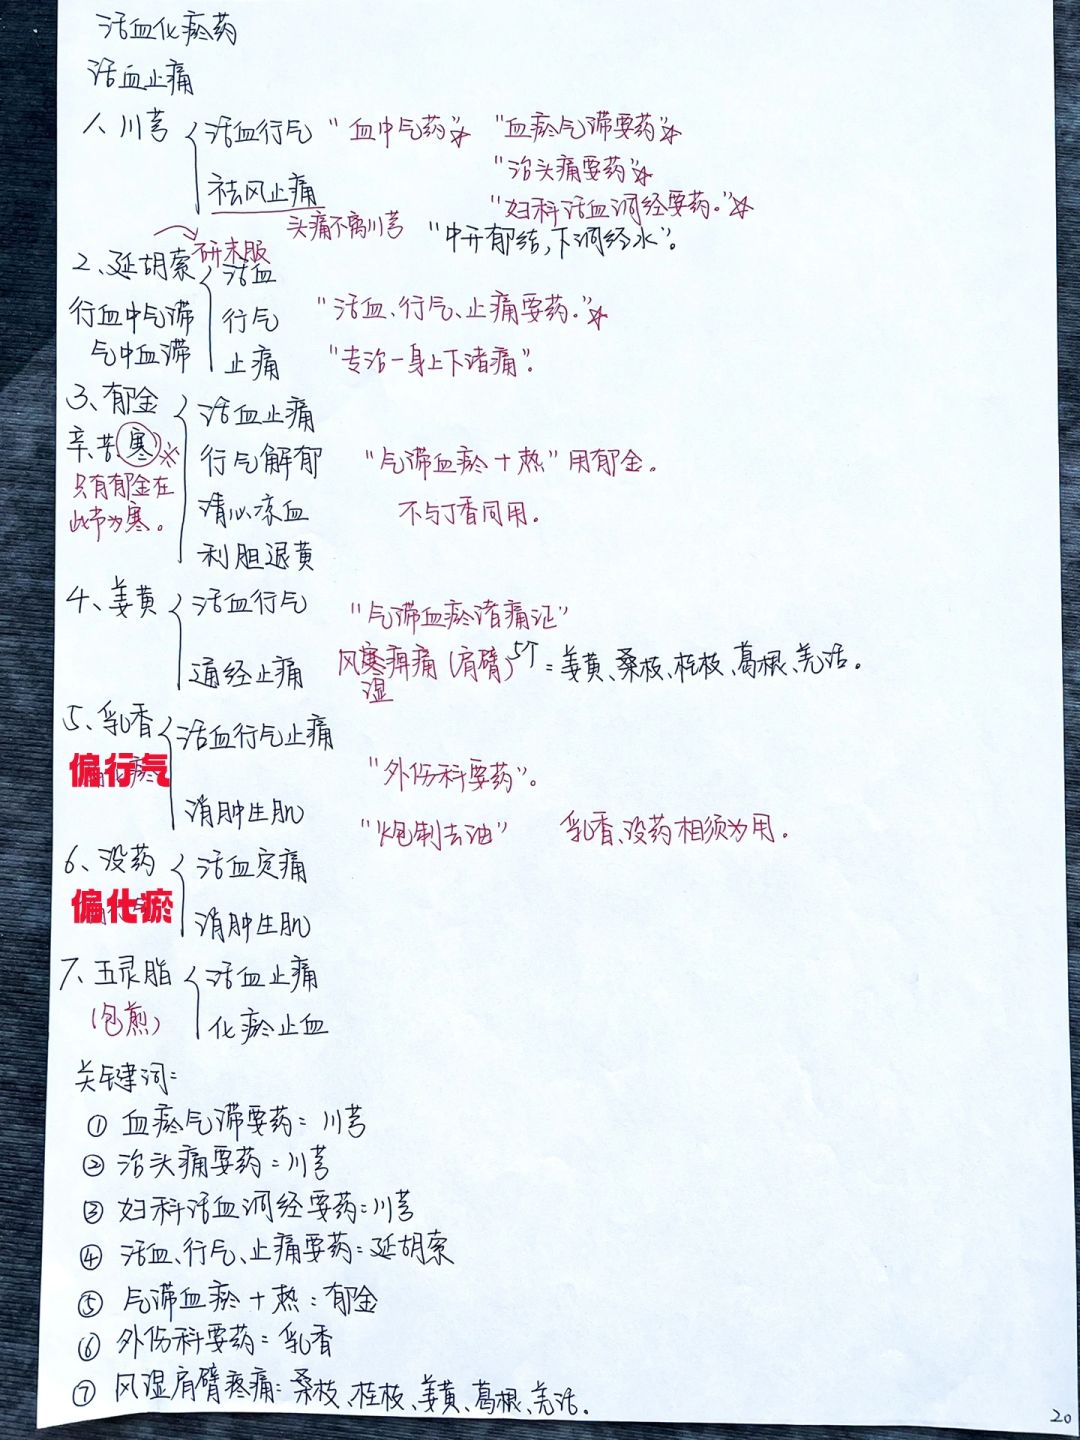 活血化瘀药
活血止痛
1、川芎 活血行气 “血中气药” “血瘀气滞要药”
“治头痛要药”
祛风止痛 “妇科活血调经要药。”
头痛不离川芎 “中开郁结,下调经水”。
研末服
2、延胡索 活血
行血中气滞 行气 “活血、行气、止痛要药。”
气中血滞 止痛 “专治一身上下诸痛”.
3、郁金 活血止痛
辛.苦.寒※ 行气解郁 “气滞血瘀+热”用郁金.
只有郁金在 清心凉血 不与丁香同用.
此节为寒。
利胆退黄
4、姜黄 活血行气 “气滞血瘀诸痛证”
通经止痛 风寒湿痹痛(肩臂)5个=姜黄、桑枝、桂枝、葛根、羌活.
5、乳香 活血行气止痛
偏行气 “外伤科要药”。
消肿生肌 “炮制去油” 乳香、没药相须为用.
6、没药 活血定痛
偏化瘀 消肿生肌
7、五灵脂 活血止痛
(包煎) 化瘀止血
关键词:
① 血瘀气滞要药=川芎
② 治头痛要药=川芎
③ 妇科活血调经要药=川芎
④ 活血、行气、止痛要药=延胡索
⑤ 气滞血瘀+热:郁金
⑥ 外伤科要药=乳香
⑦ 风湿肩臂疼痛:桑枝、桂枝、姜黄、葛根、羌活.
20